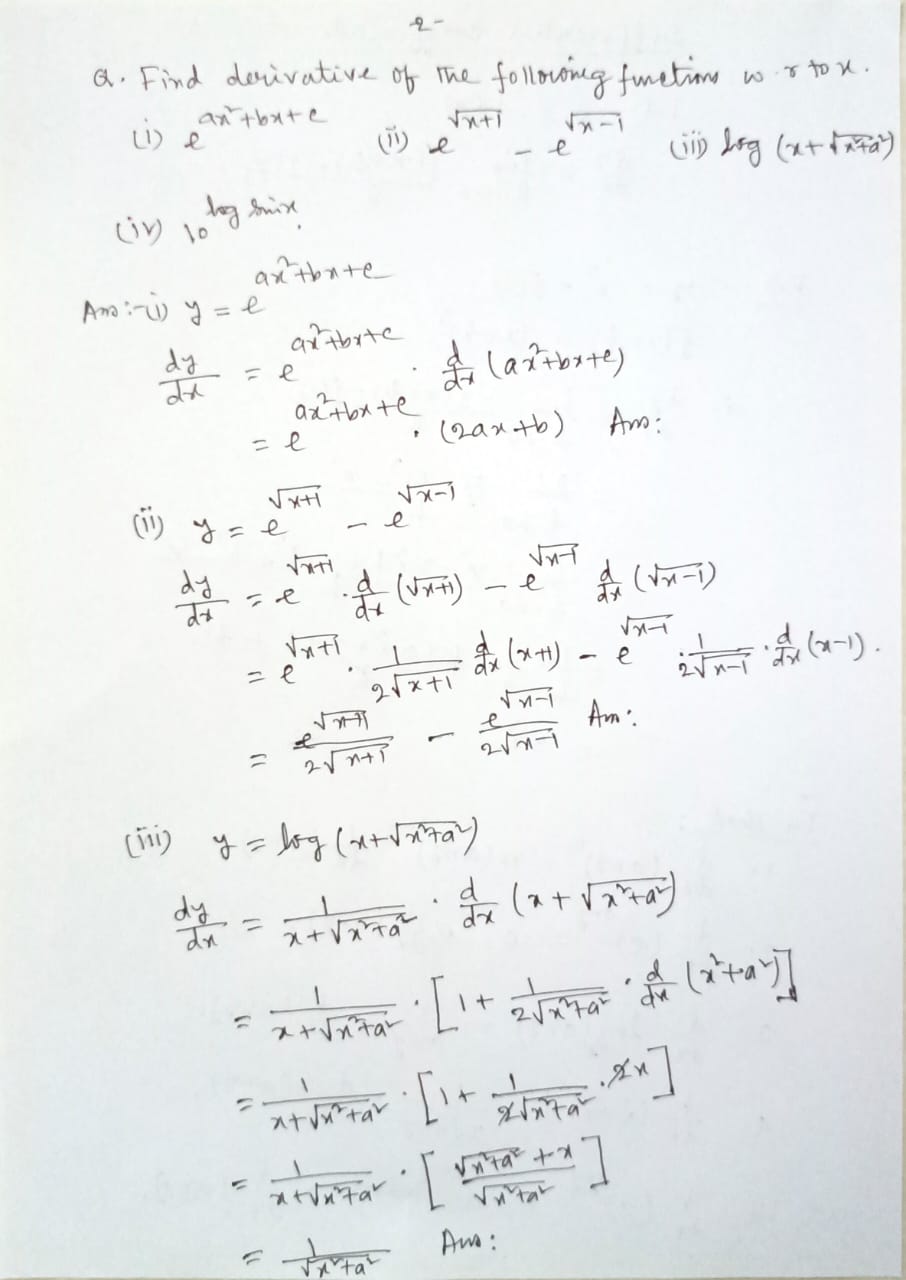 -2-
Q. Find derivative of the following functions w.r to x.
(i) e^(ax²+bx+c) (ii) e^(√(x+1)) - e^(√(x-1)) (iii) log (x+√(x²+a²))
(iv) 10^(log sinx).
Ans:-(i) y = e^(ax²+bx+c)
dy/dx = e^(ax²+bx+c) . d/dx (ax²+bx+c)
= e^(ax²+bx+c) . (2ax+b) Ans:
(ii) y = e^(√(x+1)) - e^(√(x-1))
dy/dx = e^(√(x+1)) . d/dx (√(x+1)) - e^(√(x-1)) d/dx (√(x-1))
= e^(√(x+1)) . 1/(2√(x+1)) d/dx (x+1) - e^(√(x-1)) . 1/(2√(x-1)) . d/dx (x-1).
= e^(√(x+1))/(2√(x+1)) - e^(√(x-1))/(2√(x-1)) Ans:
(iii) y = log (x+√(x²+a²))
dy/dx = 1/(x+√(x²+a²)) . d/dx (x+√(x²+a²))
= 1/(x+√(x²+a²)) . [1+ 1/(2√(x²+a²)) . d/dx (x²+a²)]
= 1/(x+√(x²+a²)) . [1+ 1/(2√(x²+a²)) . 2x]
= 1/(x+√(x²+a²)) . [(√(x²+a²) + x)/√(x²+a²)]
= 1/√(x²+a²) Ans: